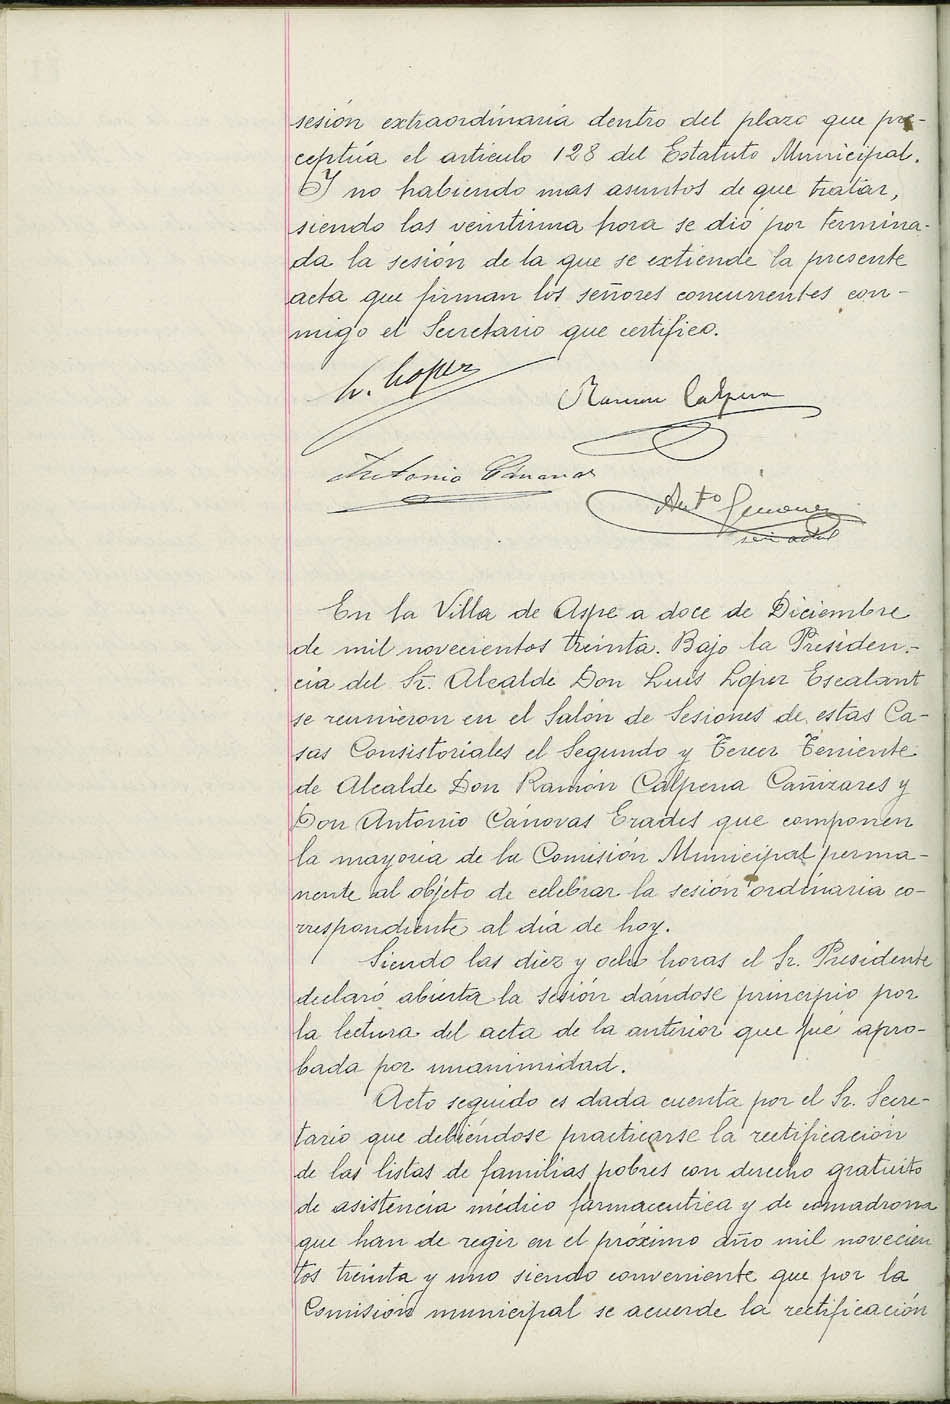 sesión extraordinaria dentro del plazo que pre-
ceptúa el articulo 128 del Estatuto Municipal.
Y no habiendo mas asuntos de que tratar,
siendo las veintiuna hora se dió por termina-
da la sesión de la que se extiende la presente
acta que firman los señores concurrentes con-
migo el Secretario que certifico.
L. Lopez
Ramon Calpena
Antonio Cánovas
Antº Gimenez
En la Villa de Aspe a doce de Diciembre
de mil novecientos treinta. Bajo la Presiden-
cia del Sr. Alcalde Don Luis López Escalant
se reunieron en el Salón de Sesiones de estas Ca-
sas Consistoriales el Segundo y Tercer Teniente
de Alcalde Don Ramón Calpena Cañizares y
Don Antonio Cánovas Erades que componen
la mayoria de la Comisión Municipal perma-
nente al objeto de celebrar la sesión ordinaria co-
rrespondiente al día de hoy.
Siendo las diez y ocho horas el Sr. Presidente
declaró abierta la sesión dándose principio por
la lectura del acta de la anterior que fué apro-
bada por unanimidad.
Acto seguido es dada cuenta por el Sr. Secre-
tario que debiéndose practicarse la rectificación
de las listas de familias pobres con derecho gratuito
de asistencia médico farmaceutica y de comadrona
que han de regir en el próximo año mil novecien
tos treinta y uno siendo conveniente que por la
Comisión municipal se acuerde la rectificación